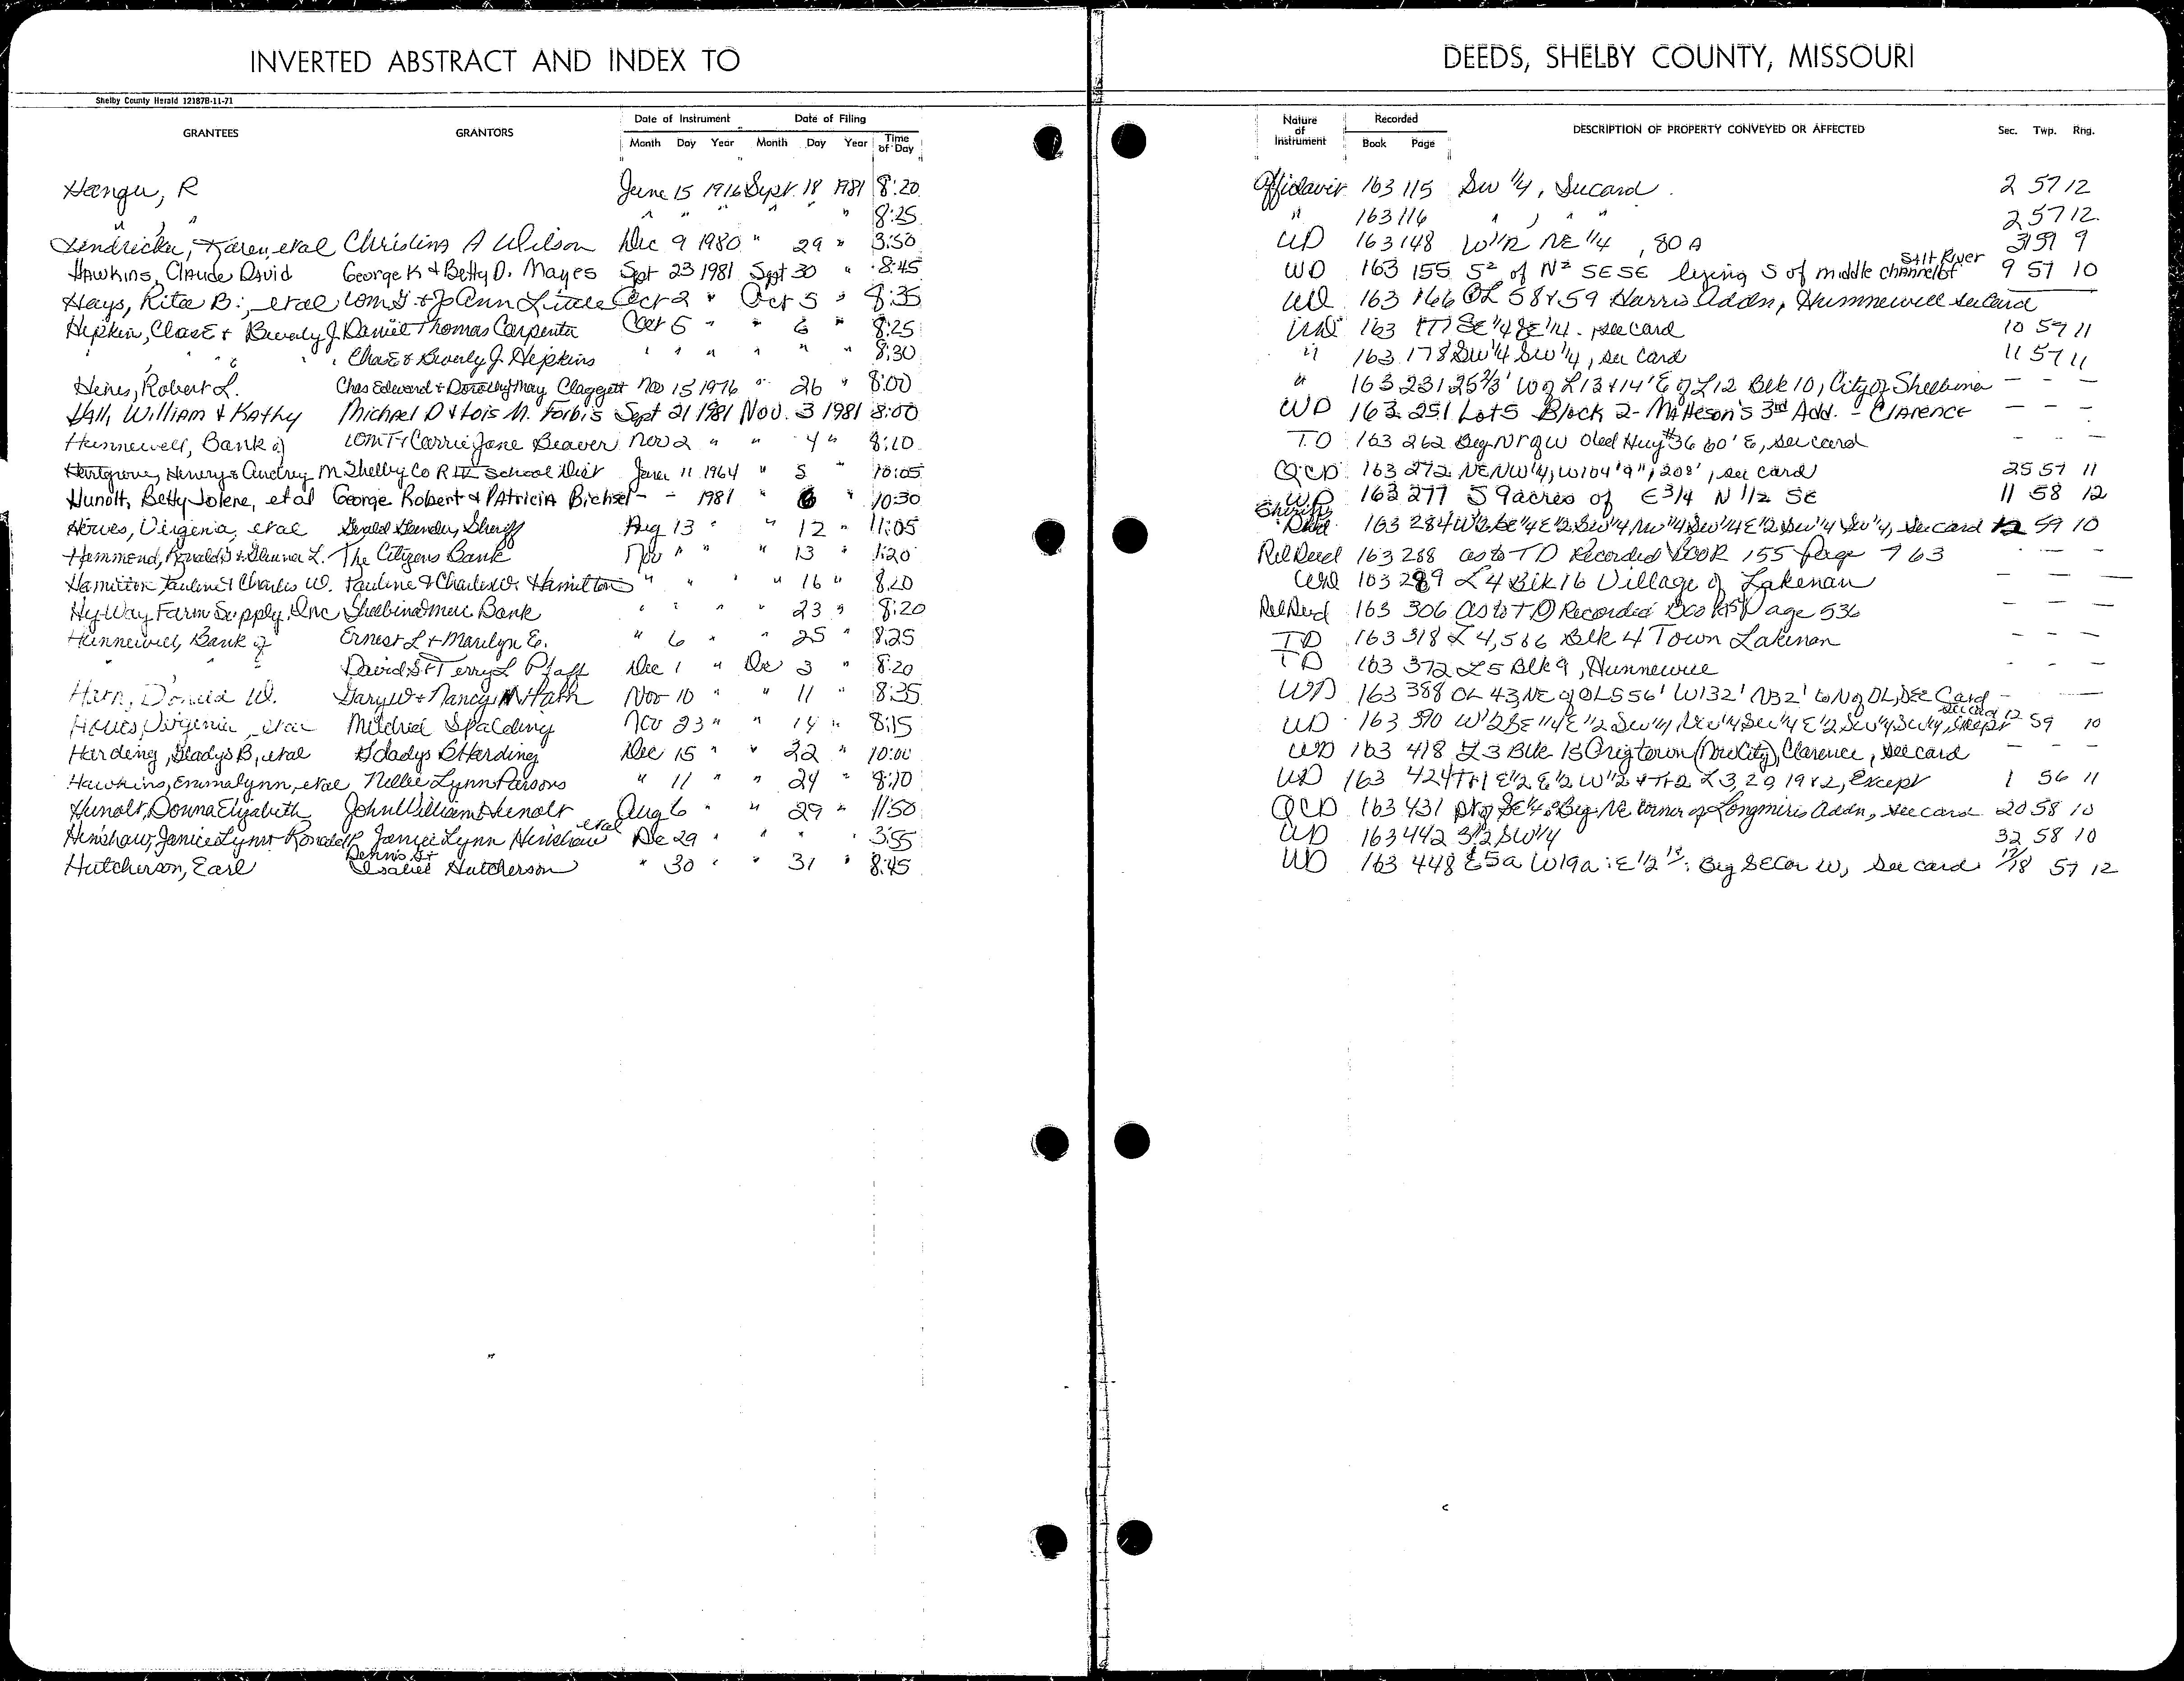 INVERTED ABSTRACT AND INDEX TO DEEDS, SHELBY COUNTY, MISSOURI
Shelby County Herald 12187B-11-71
GRANTEES GRANTORS Date of Instrument Date of Filing Nature of Instrument Recorded DESCRIPTION OF PROPERTY CONVEYED OR AFFECTED Sec. Twp. Rng.
Month Day Year Month Day Year Time of Day Book Page
R June 15 1916 Sept 18 1981 8:20 Affidavit 163 115 SW 1/4, See card 2 57 12
" " " " " " " 8:25 " 163 116 " " " 2 57 12
Karen, etal Christina A Wilson Dec 9 1980 " 29 " 3:50 WD 163 148 W 1/2 NE 1/4, 80 A 31 59 9
Hawkins, Claude David George K & Betty D. Mayes Sept 23 1981 Sept 30 " 8:45 WD 163 155 S² of N² SE SE lying S of middle channel of Salt River 9 57 10
Hays, Rita B., etal Tom G & Jo Ann Little Oct 2 " Oct 5 " 8:35 WD 163 166 OL 58 & 59 Harris Addn, Hunnewell see Card
Hipkin, Chas E & Beverly J Daniel Thomas Carpenter Oct 5 " " 6 " 8:25 WD 163 177 SE 1/4 SE 1/4. see card 10 59 11
" " " Chas E & Beverly J. Hipkins " " " " " " 8:30 " 163 178 SW 1/4 SW 1/4, see card 11 57 11
Robert L. Chas Edward & Dorothy May Claggett Nov 15 1976 " 26 " 8:00 " 163 231 25 2/3' W of L 13 & 14' E of L 12 Blk 10, City of Shelbina - - -
Hall, William & Kathy Michael D & Lois M. Forbis Sept 21 1981 Nov. 3 1981 8:00 WD 163 251 Lot 5 Block 2 - Matteson's 3rd Add. - Clarence - - -
Hunnewell, Bank of Tom T & Carrie Jane Beaver Nov 2 " " 4 " 8:10 TD 163 262 Beg N r of w Old Hwy #36 60' E, see card - - -
Hartgrove, Henry & Audrey M Shelby Co R IV School Dist 11 1964 " 5 " 10:05 QCD 163 272 NE NW 1/4, W 104' 9", 208', see card 25 57 11
Hunolt, Betty Jolene, etal George Robert & Patricia Bichsel - - 1981 " 6 " 10:30 WD 163 277 59 acres of E 3/4 N 1/2 SE 11 58 12
Howes, Virginia, etal Sheriff Aug 13 " " 12 " 11:05 Sheriffs Deed 163 284 W 1/2 SE 1/4 E 1/2 SW 1/4 NW 1/4 SW 1/4 E 1/2 SW 1/4 SW 1/4, see card 12 59 10
Hammond, Ronald & L. The Citizens Bank Nov " " " 13 " 1:20 Rel Deed 163 288 as to TD Recorded Book 155 Page 763 - - -
Hamilton Pauline & Charles W. Pauline & Charles W. Hamilton " " " " 16 " 8:20 WD 163 289 L 4 Blk 16 Village of Lakenan - - -
Hy-Way Farm Supply, Inc Shelbina Merc Bank " " " " 23 " 8:20 Rel Deed 163 306 as to TD Recorded Book Page 536 - - -
Hunnewell, Bank of Ernest L & Marilyn E. " 6 " " 25 " 8:25 TD 163 318 L 4, 5 & 6 Blk 4 Town Lakenan - - -
" " David S & Terry L Pfaff Dec 1 " Dec 3 " 8:20 TD 163 372 L 5 Blk 9, Hunnewell - - -
Donald W. Gary W & Nancy Nov 10 " " 11 " 8:35 WD 163 388 OL 43, NE of OL 5 56' W 132' N 32' to N of OL, See Card - -
Howes, Virginia, etal Mildred Spalding Nov 23 " " 14 " 8:15 WD 163 390 W 1/2 SE 1/4 E 1/2 SW 1/4 NW 1/4 SW 1/4 E 1/2 SW 1/4 SW 1/4, except see card 12 59 10
Harding, Gladys B, etal Gladys B Harding Dec 15 " " 22 " 10:00 WD 163 418 L 3 Blk 15 Orig town (Now City) Clarence, see card - - -
Hawkins, Emma Lynn, etal Nellie Lynn Parsons " 11 " " 24 " 8:10 WD 163 424 Tr 1 E 1/2 E 1/2 W 1/2 & Tr 2 L 3, 2 19 & 2, Except 1 56 11
Hunolt, Donna Elizabeth John William Hunolt Aug 6 " " 29 " 11:50 QCD 163 431 pt of SE 1/4: Beg NE corner of Longmires Addn, see card 20 58 10
Hinshaw, Janice Lynn & Ronald Janice Lynn Hinshaw etal De 29 " " " " 3:55 WD 163 442 S 1/2 SW 1/4 32 58 10
Hutcherson, Earl Dennis & Hutcherson " 30 " " 31 " 8:45 WD 163 448 E 5a W 19a: E 1/2: Beg SE Cor W, See card 17/18 57 12